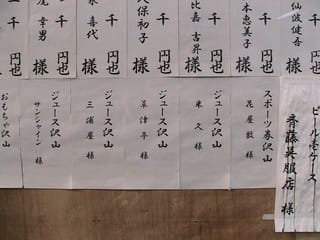 仙波健吾
様
本恵美子
千円也
様
比嘉吉昇
千円也
様
久保初子
千円也
様
喜代
千円也
様
尾幸男
千円也
様
ビール壱ケース
斉藤呉服店様
スポーツ券沢山
花屋敷様
ジュース沢山
米久様
ジュース沢山
草津亭様
ジュース沢山
三浦屋様
ジュース沢山
サンシャイン様
おもちゃ沢山